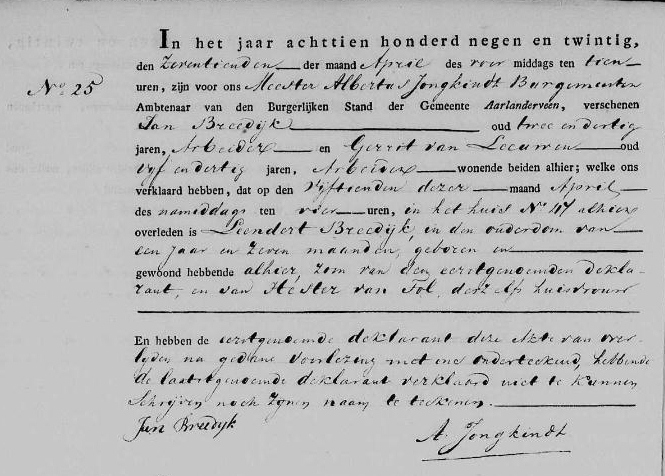 In het jaar achttien honderd negen en twintig,
den Zeventienden der maand April des voor middags ten tien
No. 25
uren, zijn voor ons Meester Albertus Jongkindt Burgemeester
Ambtenaar van den Burgerlijken Stand der Gemeente Aarlanderveen, verschenen
Jan Breedyk oud twee en dertig
jaren, Arbeider en Gerrit van Leeuwen oud
vyf en dertig jaren, Arbeider wonende beiden alhier; welke ons
verklaard hebben, dat op den Vyftienden dezer maand April
des namiddags ten vier uren, in het huis No 47 alhier
overleden is Leendert Breedyk, in den ouderdom van
een Jaar en Zeven maanden, geboren en
gewoond hebbende alhier, zoon van den eerstgenoemden dekla-
rant, en van Hester van Tol, deszelfs huisvrouw
En hebben de eerstgenoemde deklarant deze Akte van over-
lyden na gedane voorlezing met ons onderteekend, hebbende
de laatstgenoemde deklarant verklaard niet te kunnen
Schryven noch zynen naam te teekenen.
Jan Breedyk
A. Jongkindt